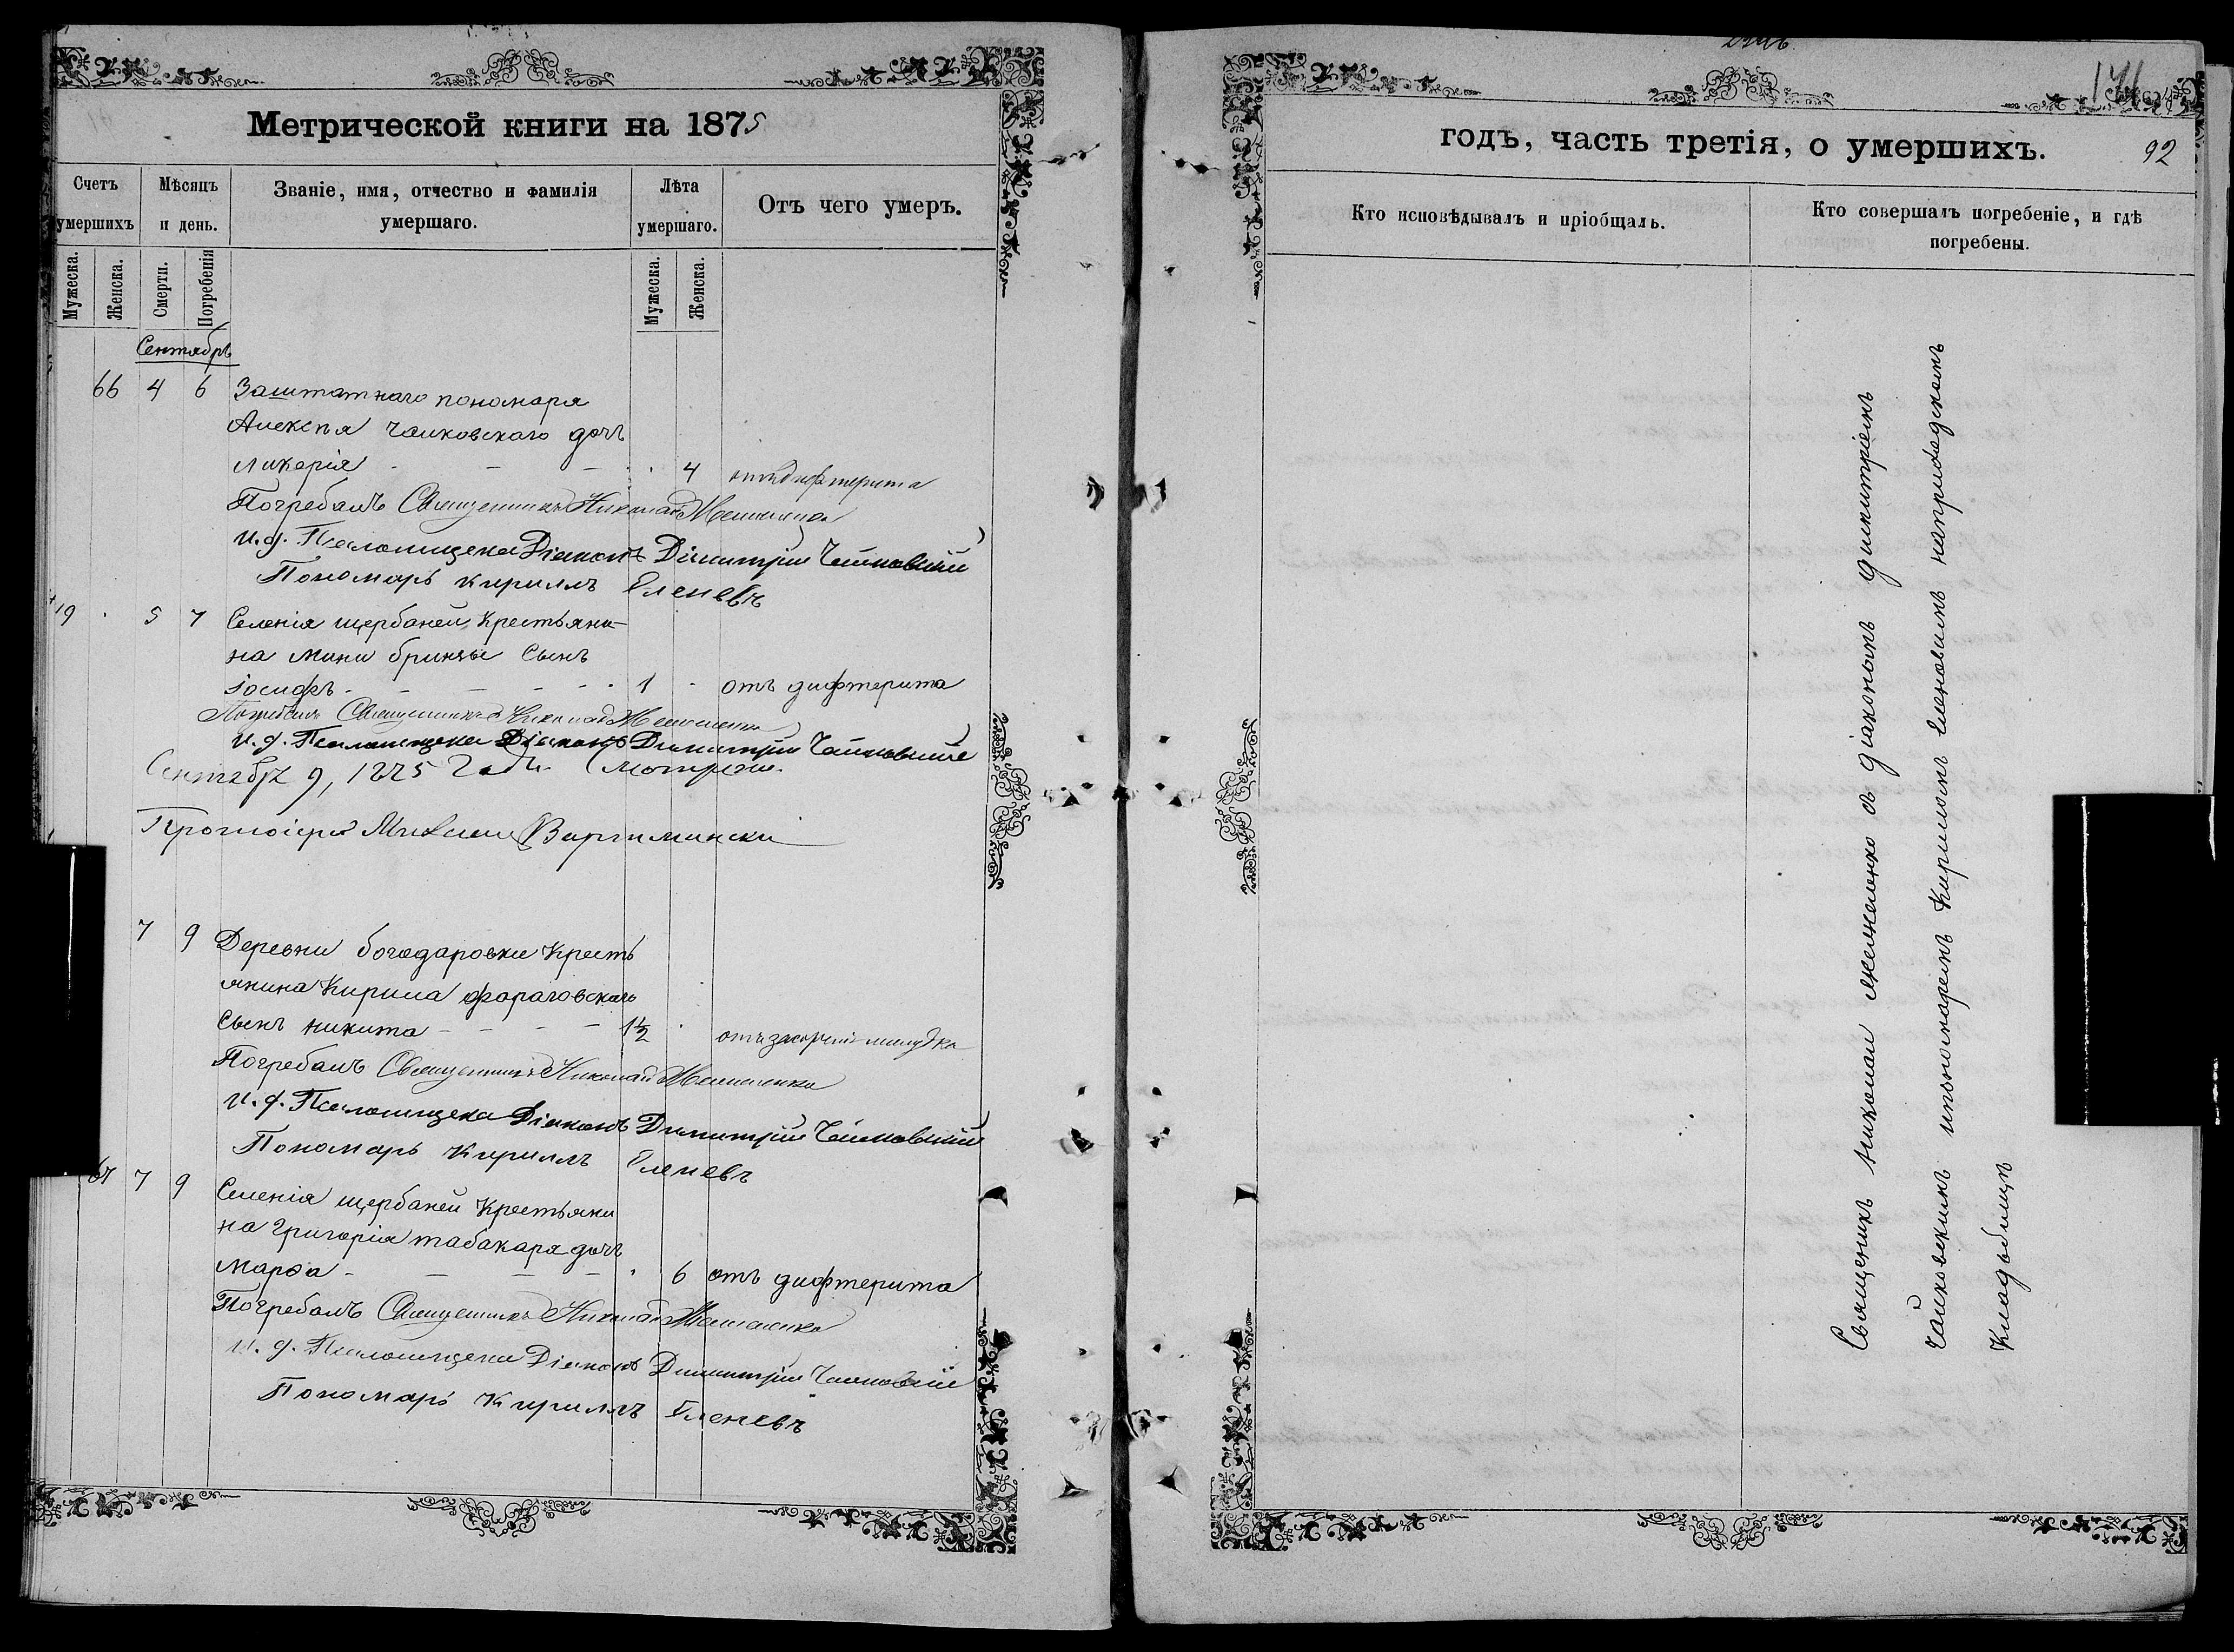 Метрической книги на 1875
Счетъ умершихъ
Мѣсяцъ и день.
Званіе, имя, отчество и фамилія умершаго.
Лѣта умершаго.
Отъ чего умеръ.
Мужеска.
Женска.
Смерти.
Погребенія
Мужеска.
Женска.
Сентябрь
66 4 6 Заштатнаго пономаря
Алексѣя Чайковскаго дочь
Ликерія - - - 4 дифтерита
Погребалъ Священникъ Николай
И. д. Псаломщека Діаконъ Димитрій Чайковскій
Пономарь Кириллъ Еленевъ
5 7 Селенія щербаней Крестьяни-
на Мини бринзы Сынъ
Іосифъ - - - 1 - отъ дифтерита
Погребалъ Священникъ Николай
И. д. Псаломщека Діаконъ Димитрій Чайковскій
Сентября 9, 1875 Года Смотрѣлъ.
Протоіерей Михаилъ
7 9 Деревни богодаровки Кресть
янина Кирила фораговскаго
Сынъ никита - - - - 1½ отъ засоренія желудка
Погребалъ Священникъ Николай
И. д. Псаломщека Діаконъ Димитрій Чайковскій
Пономарь Кириллъ Еленевъ
67 7 9 Селенія щербаней Крестьяни
на Григорія табакаря дочь
Марѳа - - - - 6 отъ дифтерита
Погребалъ Священникъ Николай
И. д. Псаломщека Діаконъ Димитрій Чайковскій
Пономарь Кириллъ Еленевъ
годъ, часть третія, о умершихъ.
92
Кто исповѣдывалъ и пріобщалъ.
Кто совершалъ погребеніе, и гдѣ погребены.
Священикъ николай с діакономъ димитріемъ
Чайковскимъ ипономаремъ Кириломъ Еленовимъ наприходскомъ
Кладьбищѣ